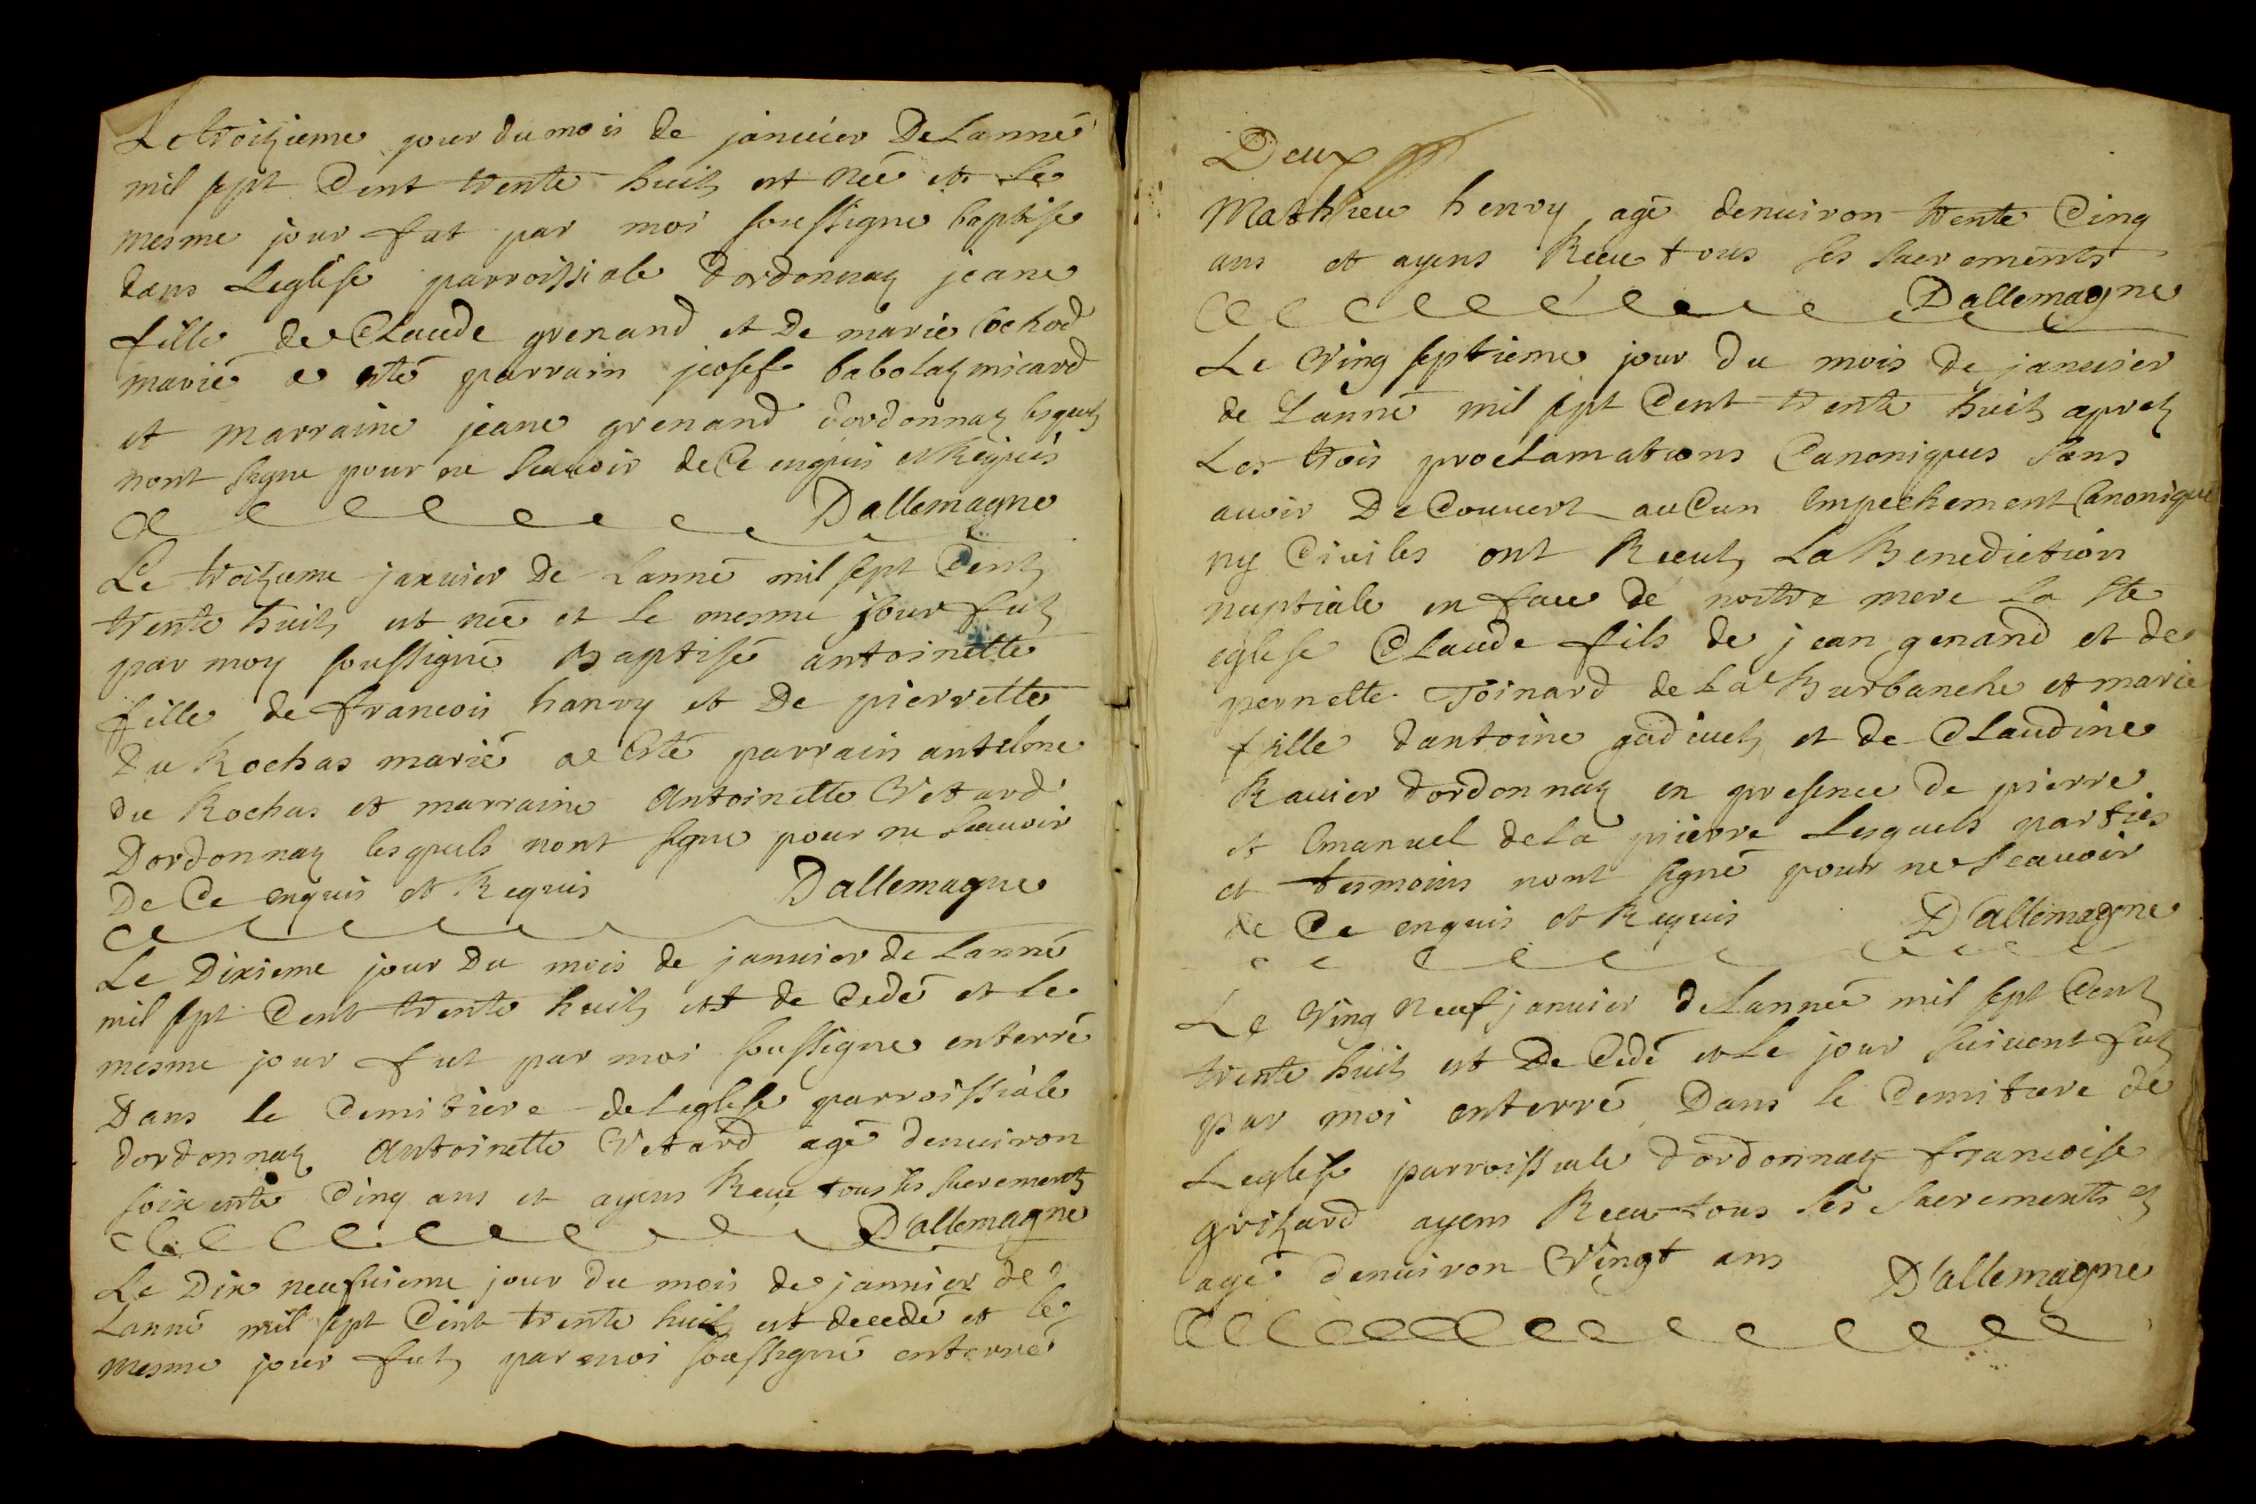 Le troizieme jour du mois de januier De Lanné
mil sept Cent trente huit est neé et le
mesme jour fut par moi soussigne baptise
dans Leglise parroissiale dordonnaz jeane
fille de Claude grenand et De marie bochod
marié a esté parrain josef babolaz micard
et marraine jeane grenand dordonnaz lesquelz
nont signe pour ne scauoir de Ce enquis et Requis
Dallemagne
Le troizieme januier De Lanné mil sept Centz
trente huitz est neé et le mesme jour futz
par moy soussigné Baptisé antoinette
fille de francois hanry et De pierrette
Du Rochas marié ae Esté parrain antelme
du Rochas et marraine Antoinette Vetard
Dordonnaz lesquels nont signe pour ne scauoir
De Ce enquis et Requis Dallemagne
Le Dixieme jour Du mois de januier de Lanné
mil sept Cent trente huitz est de Cedé et le
mesme jour fut par moi soussigne enterré
Dans le Cemitiere de Leglise parroissiale
dordonnaz Antoinette Vetard agé denuiron
soixente Cinq ans et ayens Receu tous ses sacrementz
D'allemagne
Le Dix neufuieme jour du mois de januier de
Lanné mil sept Cent trente huitz est decedé et le
mesme jour futz par moi soussigné enterré
Deux
Mathieu henry agé denuiron trente Cinq
ans et ayens Receu tous ses sacrements
Dallemagne
Le Ving septieme jour Du mois de januier
de Lanné mil sept Cent trente huitz apretz
Les trois proclamations Canoniques sans
auoir De Couuert auCun Empechement Canonique
ny Ciuiles ont Receutz La Benediction
nuptiale en face de nottre mere la Ste
eglise Claude fils de jean genand et de
pernette Toinard de La Burbanche et marie
fille dantoine gadiuetz et de Claudine
Rauier dordonnaz en presence de pierre
et Emanuel de La pierre Lesquels parties
et tesmoins nont signé pour ne scauoir
de Ce enquis et Requis D'allemagne
Le Ving neuf januier de Lanneé mil sept Centz
trente huitz est De Cedé et Le jour suiuent futz
par moi enterré Dans le Cemitiere de
Leglise parroissiale dordonnaz francoise
grizard ayens Receu tous ses sacrements etz
agé denuiron Vingt ans D'allemagne